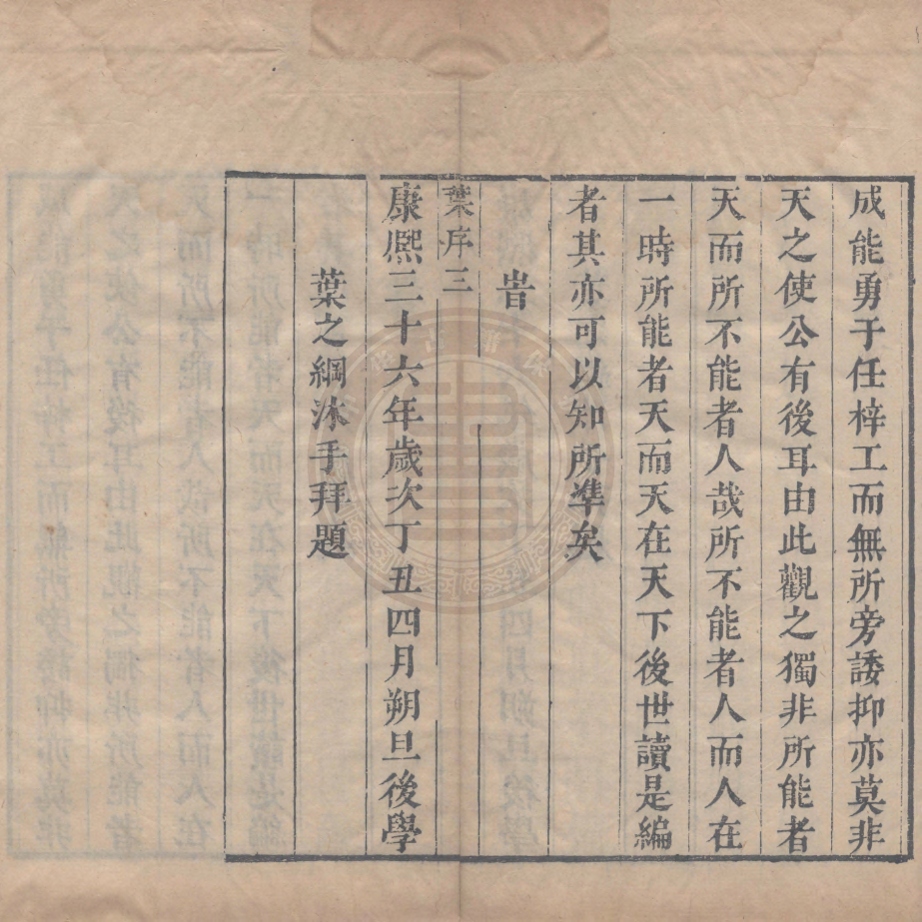 成能勇于任梓工而無所旁諉抑亦莫非
天之使公有後耳由此觀之獨非所能者
天而所不能者人哉所不能者人而人在
一時所能者天而天在天下後世讀是編
者其亦可以知所準矣
旹
葉序三
康熙三十六年歲次丁丑四月朔旦後學
葉之綱沐手拜題